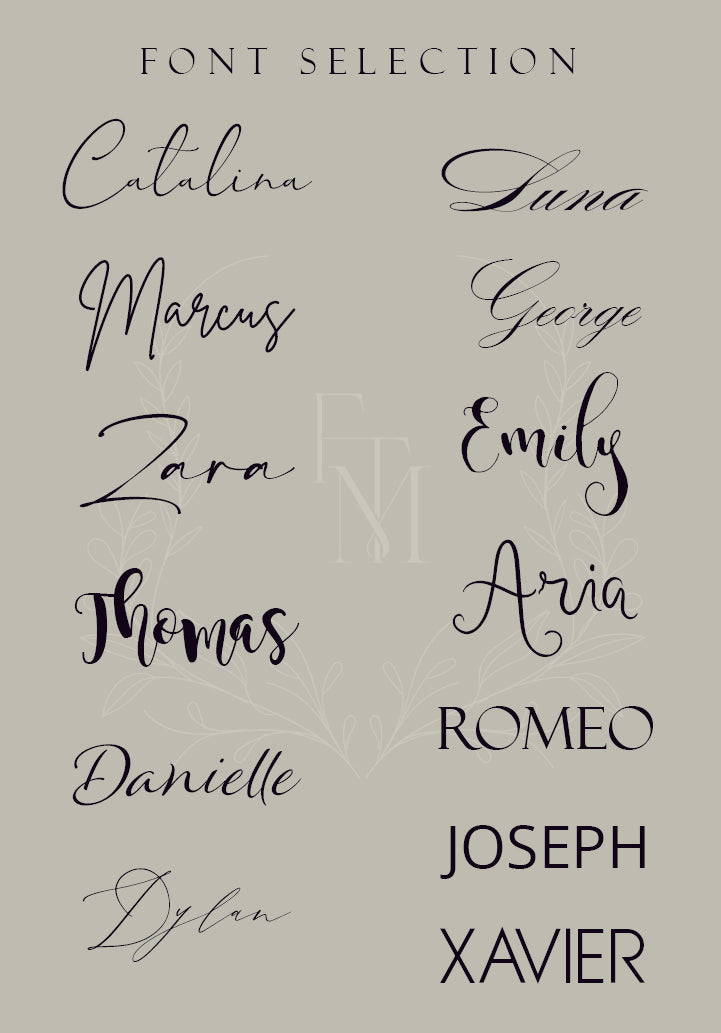 FONT SELECTION
Catalina
Marcus
Zara
Thomas
Danielle
Dylan
Luna
George
Emily
Aria
ROMEO
JOSEPH
XAVIER
FTM